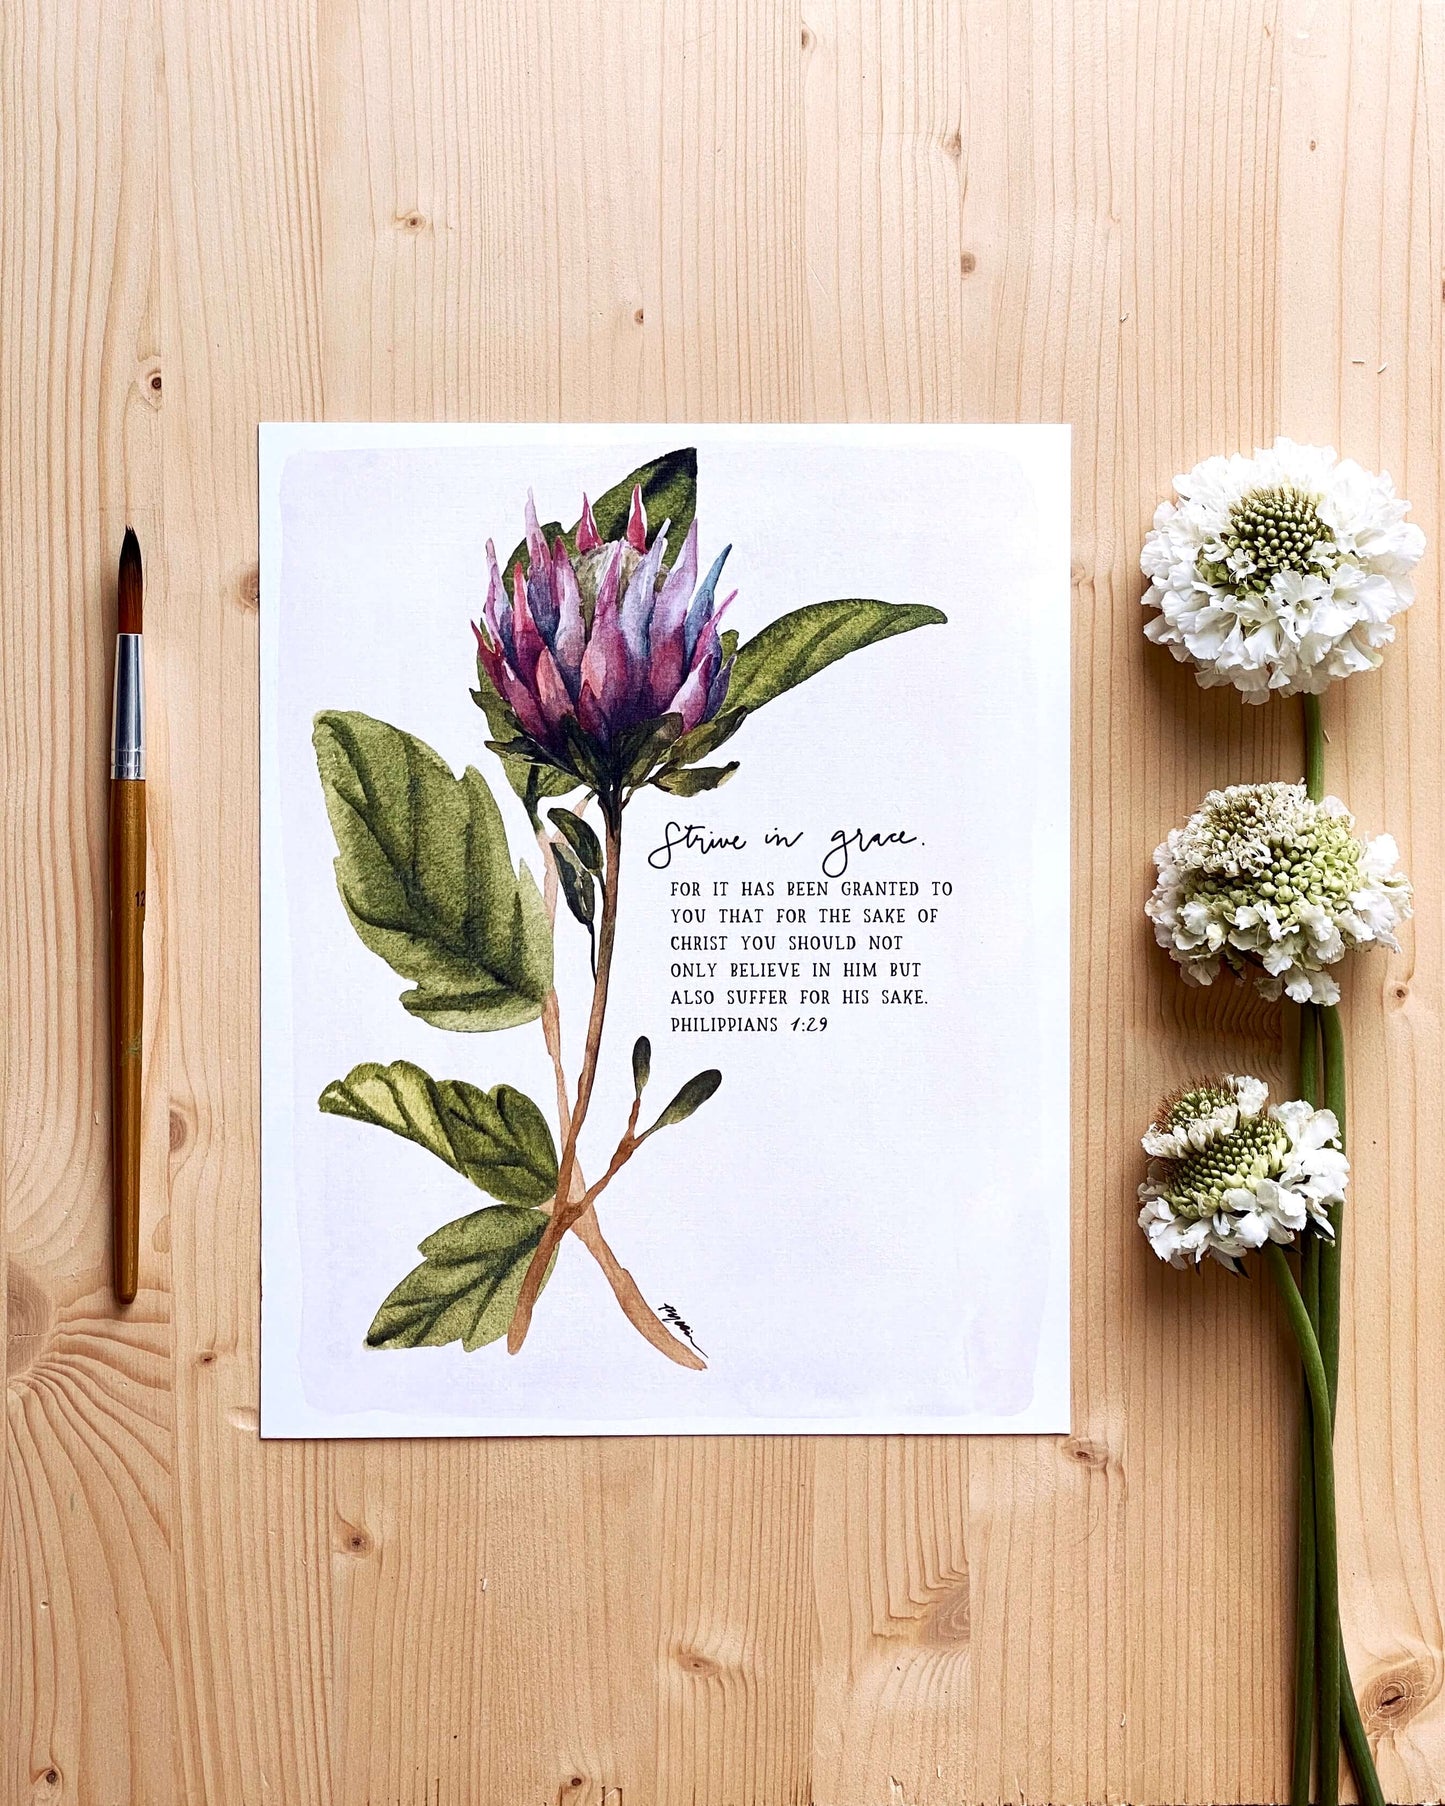 Strive in grace.
FOR IT HAS BEEN GRANTED TO
YOU THAT FOR THE SAKE OF
CHRIST YOU SHOULD NOT
ONLY BELIEVE IN HIM BUT
ALSO SUFFER FOR HIS SAKE.
PHILIPPIANS 1:29
12